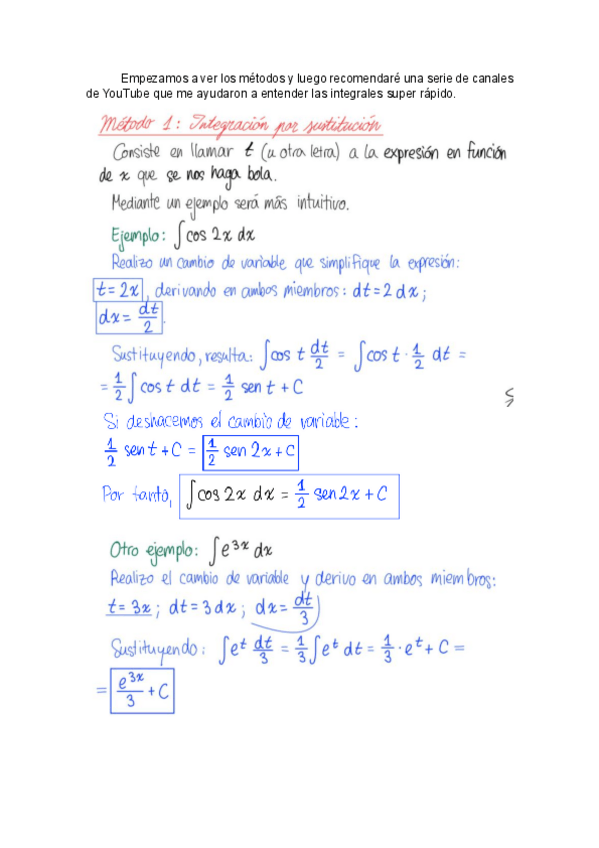 Empezamos a ver los métodos y luego recomendaré una serie de canales
de YouTube que me ayudaron a entender las integrales super rápido.
Método 1: Integración por sustitución
Consiste en llamar t (u otra letra) a la expresión en función
de x que se nos haga bola.
Mediante un ejemplo será más intuitivo.
Ejemplo: ∫cos 2x dx
Realizo un cambio de variable que simplifique la expresión:
t = 2x, derivando en ambos miembros: dt = 2 dx;
dx = dt/2.
Sustituyendo, resulta: ∫cos t dt/2 = ∫cos t · 1/2 dt =
= 1/2 ∫cos t dt = 1/2 sen t + C
Si deshacemos el cambio de variable:
1/2 sen t + C = 1/2 sen 2x + C
Por tanto, ∫cos 2x dx = 1/2 sen 2x + C
Otro ejemplo: ∫e^3x dx
Realizo el cambio de variable y derivo en ambos miembros:
t = 3x; dt = 3 dx; dx = dt/3
Sustituyendo: ∫e^t dt/3 = 1/3 ∫e^t dt = 1/3 · e^t + C =
= e^3x/3 + C